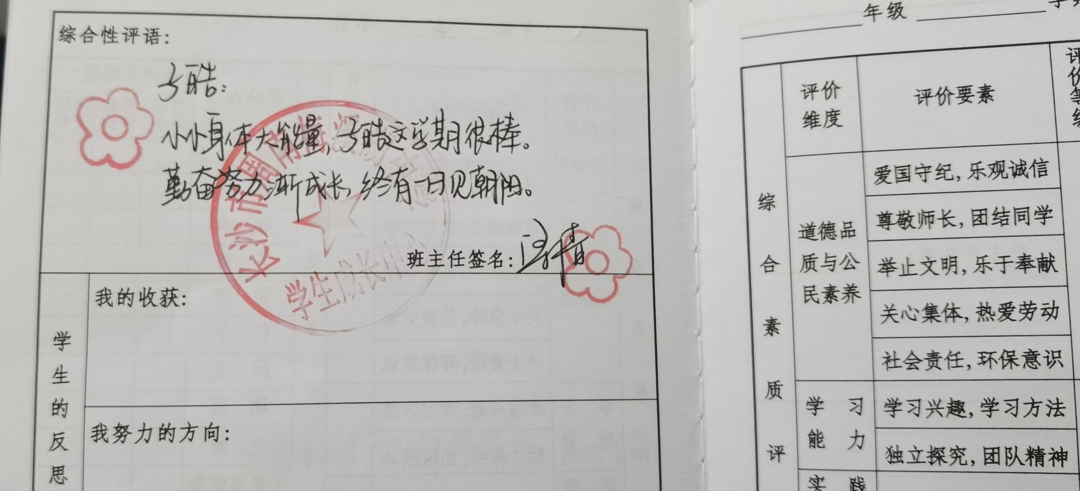 综合性评语：
子皓：
小小身体大能量，子皓这学期很棒。
勤奋努力渐成长，终有一日见朝阳。
长沙市周南梅溪湖
学生成长
班主任签名：
学生的反思
我的收获：
我努力的方向：
年级
评价维度
评价要素
评价等级
综合素质评
道德品质与公民素养
爱国守纪，乐观诚信
尊敬师长，团结同学
举止文明，乐于奉献
关心集体，热爱劳动
社会责任，环保意识
学习能力
学习兴趣，学习方法
独立探究，团队精神
实践